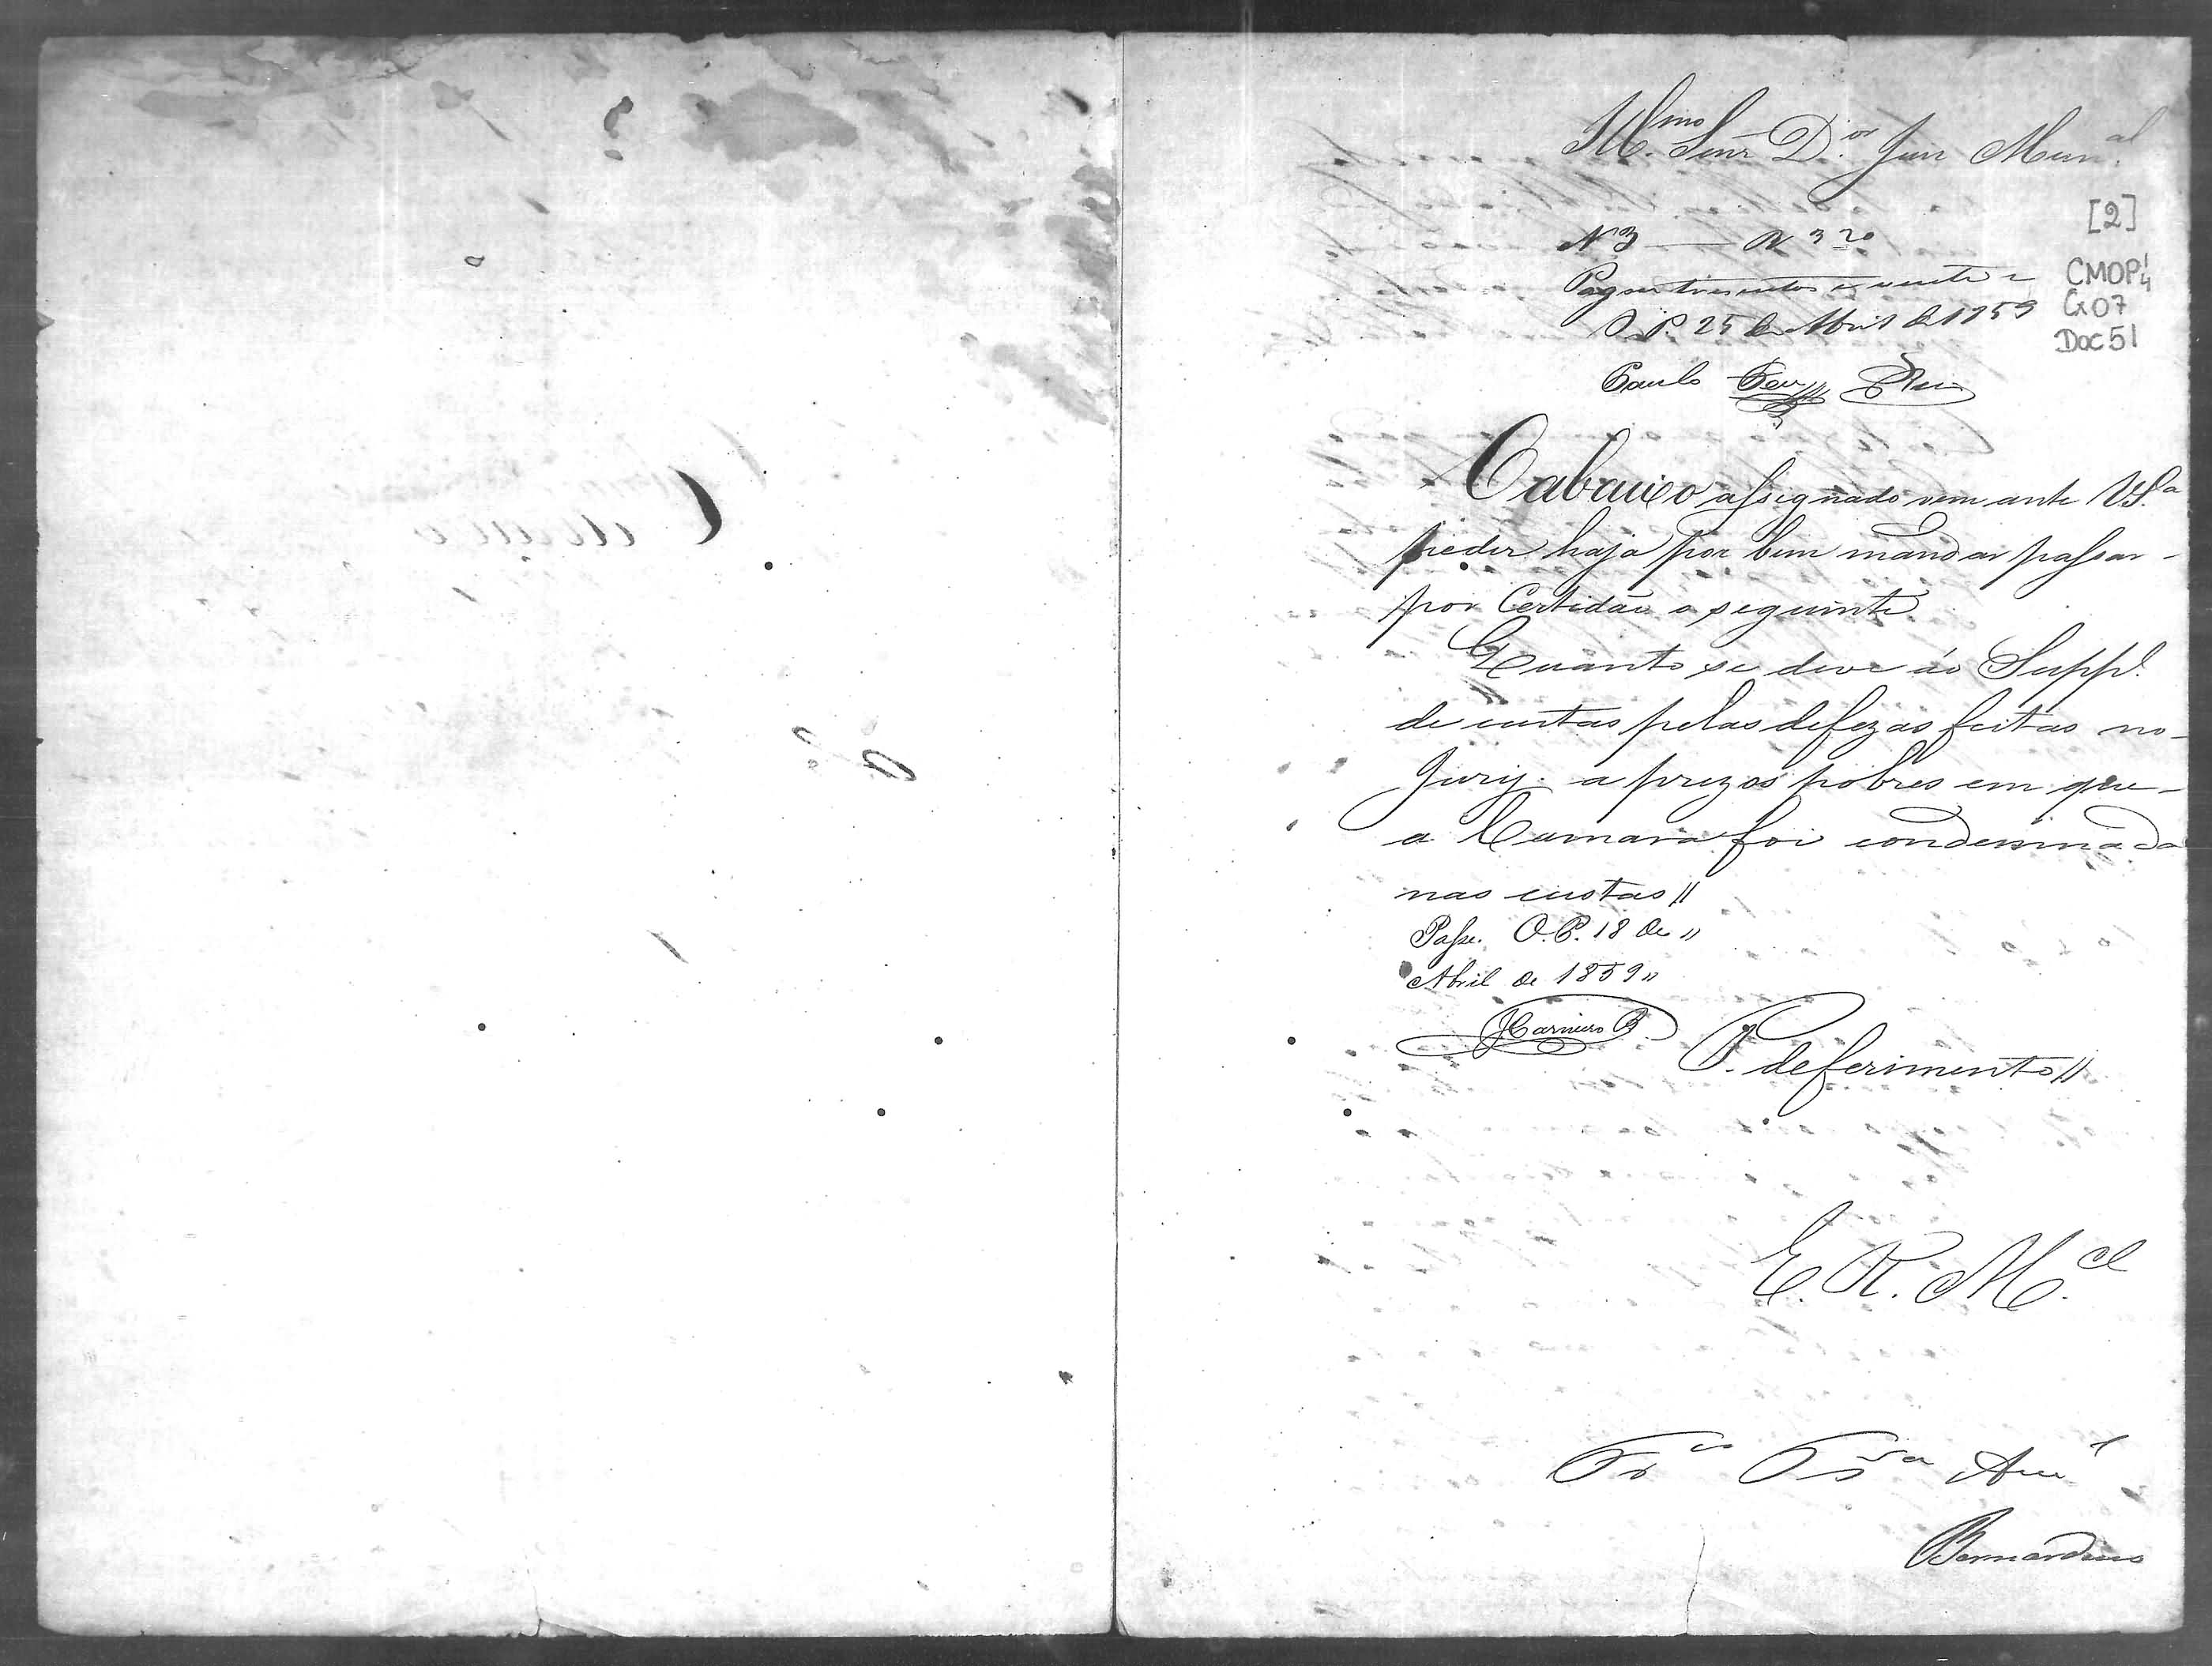 Illmo. Senr Dor. Juiz Munal.
[2]
N 3 — R 320
Pagou trescentos e vinte r
CMOP
Cx 07
O P. 25 de Abril de 1859
Doc 51
Paulo
O abaixo assignado vem ante V.Sa.
pedir haja por bem mandar passar -
por Certidão o seguinte
Quanto se deve áo Suppe.
de custas pelas defezas feitas no -
Jury. a prezos pobres em que -
a Camara foi condemnada
nas custas //
Passe. O. P. 18 de //
Abril de 1859 //
JCarneiro B
P. deferimento //
E. R. Mce.
Bernardino